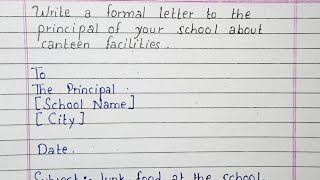 Write a formal letter to the
principal of your school about
canteen facilities.
To
The Principal.
[School Name]
[City]
Date.
Subject:- Junk food at the school